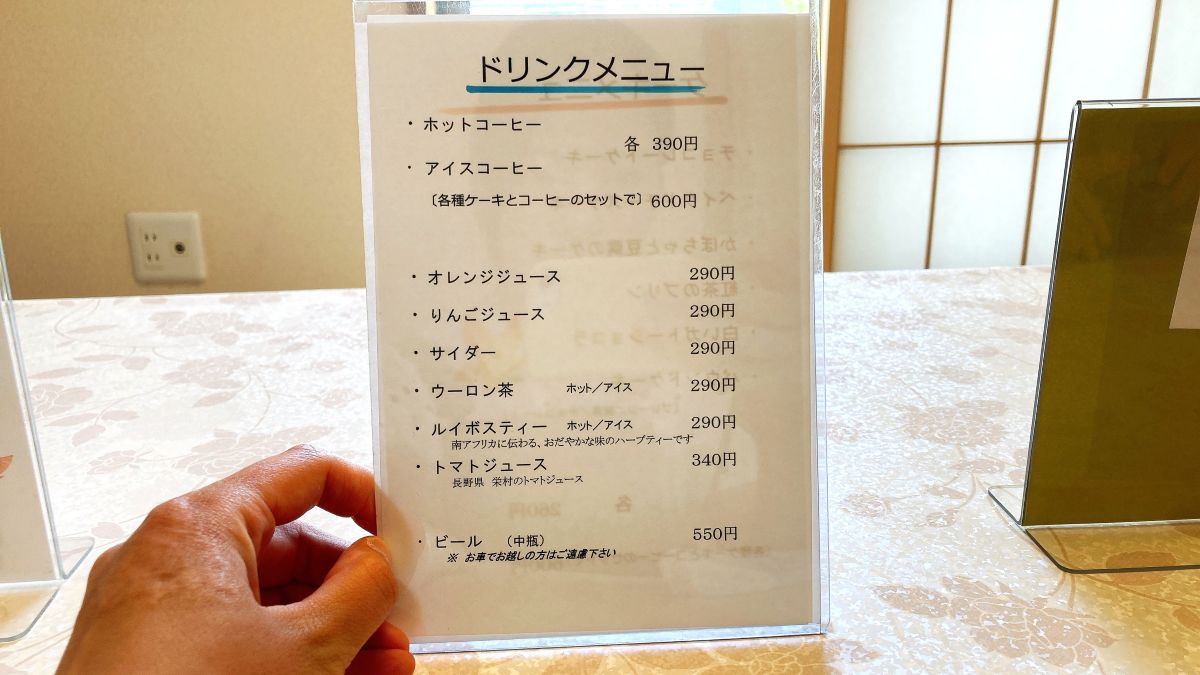 ドリンクメニュー
・ホットコーヒー
各 390円
・アイスコーヒー
〔各種ケーキとコーヒーのセットで〕 600円
・オレンジジュース 290円
・りんごジュース 290円
・サイダー 290円
・ウーロン茶 ホット／アイス 290円
・ルイボスティー ホット／アイス 290円
南アフリカに伝わる、おだやかな味のハーブティーです
・トマトジュース 340円
長野県 栄村のトマトジュース
・ビール （中瓶） 550円
※ お車でお越しの方はご遠慮下さい